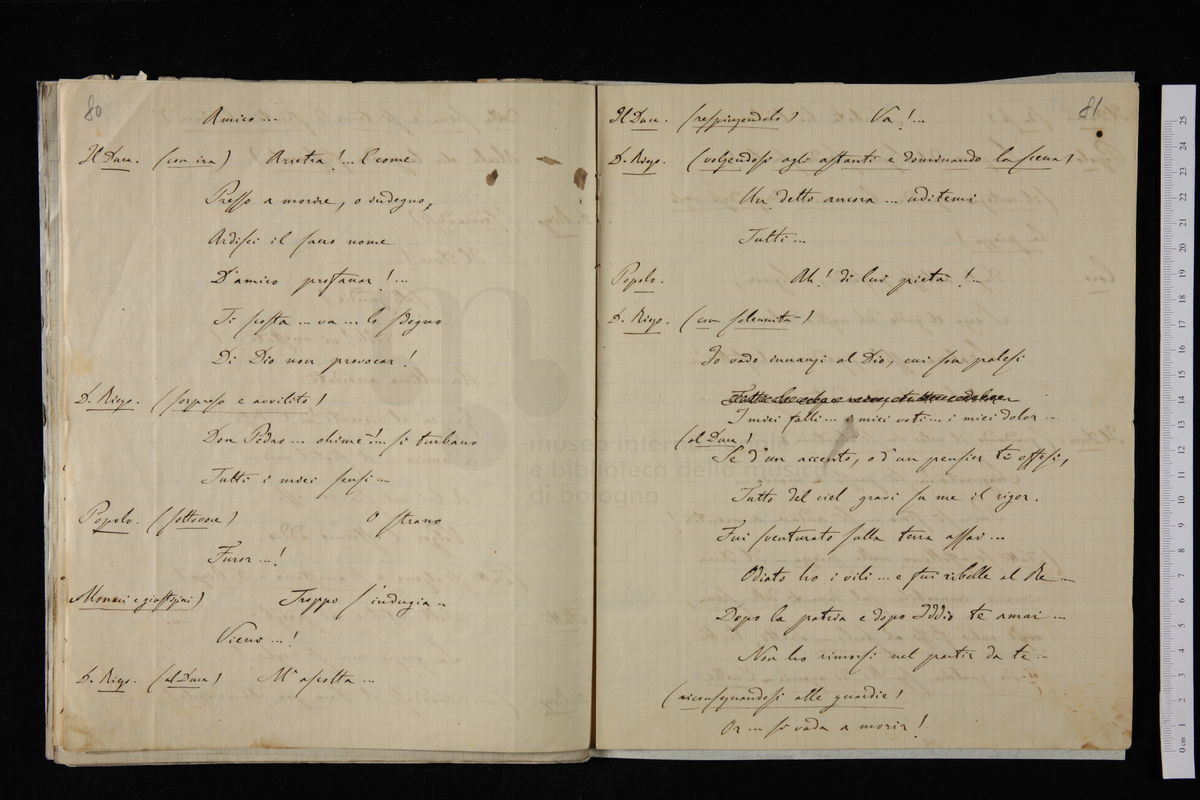 80
Amico...
Il Duca. (con ira) Arretra!... E come
Presso a morire, o indegno,
Ardisci il sacro nome
D'amico profanar!...
Ti scosta... va... lo sdegno
Di Dio non provocar!
D. Riego. (sorpreso e avvilito)
Don Pedro... ohimè!... si turbano
Tutti i miei sensi...
Popolo. (sottovoce) O strano
Furor...!
Monaci e giustizini) Troppo s'indugia..
Vieni...!
D. Riego. (al Duca) M'ascolta...
81
Il Duca. (respingendolo) Va!...
D. Riego. (volgendosi agli astanti e dominando la scena)
Un detto ancora... uditemi
Tutti...
Popolo. Ah! di lui pietà!...
D. Riego. (con solennità)
Io vado innanzi al Dio, cui son palesi
I miei falli... i miei voti... i miei dolor...
(al Duca)
Se d'un accento, o d'un pensier ti offesi,
Tutto del ciel gravi su me il rigor.
Fui sventurato sulla terra assai...
Odiato ho i vili... e fui ribelle al Re...
Dopo la patria e dopo Iddio te amai...
Non ho rimorsi nel partir da te...
(riconsegnandosi alle guardie)
Or... si vada a morir!
museo internazionale
e biblioteca della musica
di bologna
0 cm 1 2 3 4 5 6 7 8 9 10 11 12 13 14 15 16 17 18 19 20 21 22 23 24 25